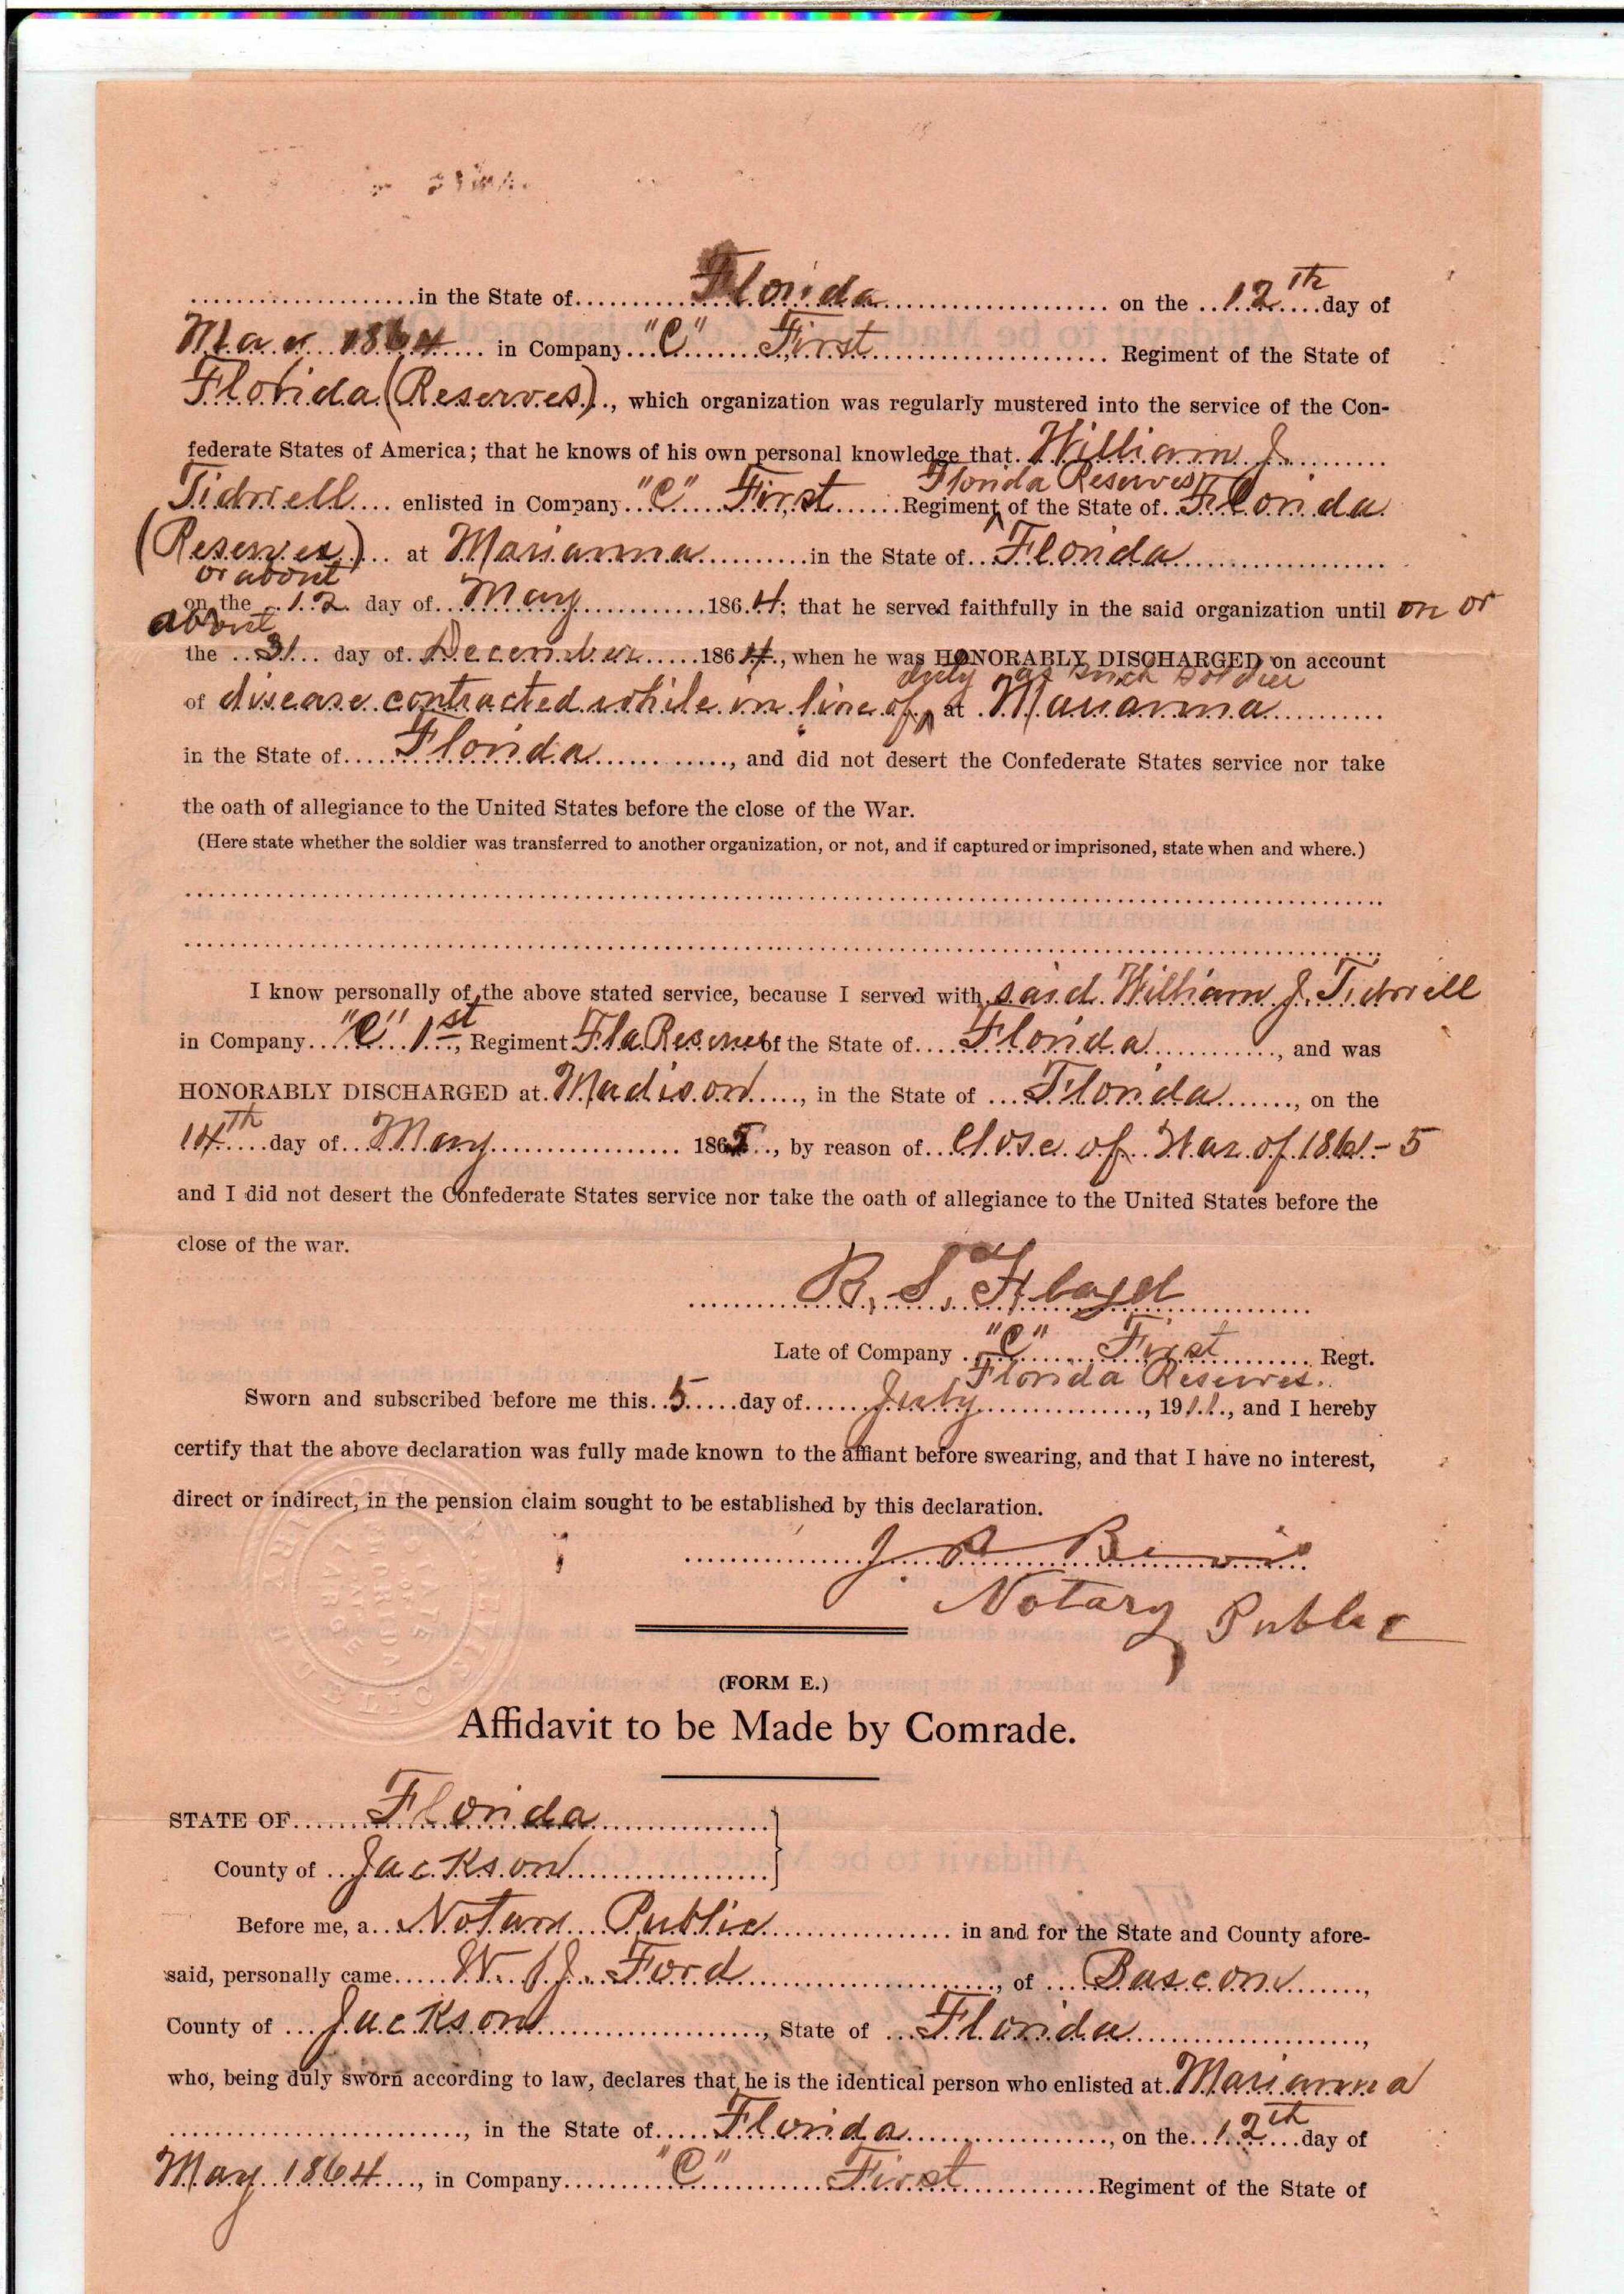 in the State of Florida on the 12th day of
May 1864 in Company "C" First Regiment of the State of
Florida (Reserves), which organization was regularly mustered into the service of the Con-
federate States of America; that he knows of his own personal knowledge that William J.
Florida Reserves
Tidwell enlisted in Company "C" First Regiment of the State of Florida
(Reserves) at Marianna in the State of Florida
or about
on the 12 day of May 1864; that he served faithfully in the said organization until on or
about
the 31 day of December 1864, when he was HONORABLY DISCHARGED on account
duty as such soldier
of disease contracted while in line of at Marianna
in the State of Florida, and did not desert the Confederate States service nor take
the oath of allegiance to the United States before the close of the War.
(Here state whether the soldier was transferred to another organization, or not, and if captured or imprisoned, state when and where.)
I know personally of the above stated service, because I served with said William J. Tidwell
in Company "C" 1st, Regiment Fla Reserves of the State of Florida, and was
HONORABLY DISCHARGED at Madison, in the State of Florida, on the
14th day of May 1865, by reason of Close of War of 1861-5
and I did not desert the Confederate States service nor take the oath of allegiance to the United States before the
close of the war.
B. S. Floyd
Late of Company "C" First Regt.
Florida Reserves.
Sworn and subscribed before me this 5 day of July, 1911, and I hereby
certify that the above declaration was fully made known to the affiant before swearing, and that I have no interest,
direct or indirect, in the pension claim sought to be established by this declaration.
NOTARY PUBLIC STATE OF FLORIDA AT LARGE
Notary Public
(FORM E.)
Affidavit to be Made by Comrade.
STATE OF Florida
County of Jackson
Before me, a Notary Public in and for the State and County afore-
said, personally came W. J. Ford, of Bascom,
County of Jackson, State of Florida,
who, being duly sworn according to law, declares that he is the identical person who enlisted at Marianna
, in the State of Florida, on the 12th day of
May 1864, in Company "C" First Regiment of the State of